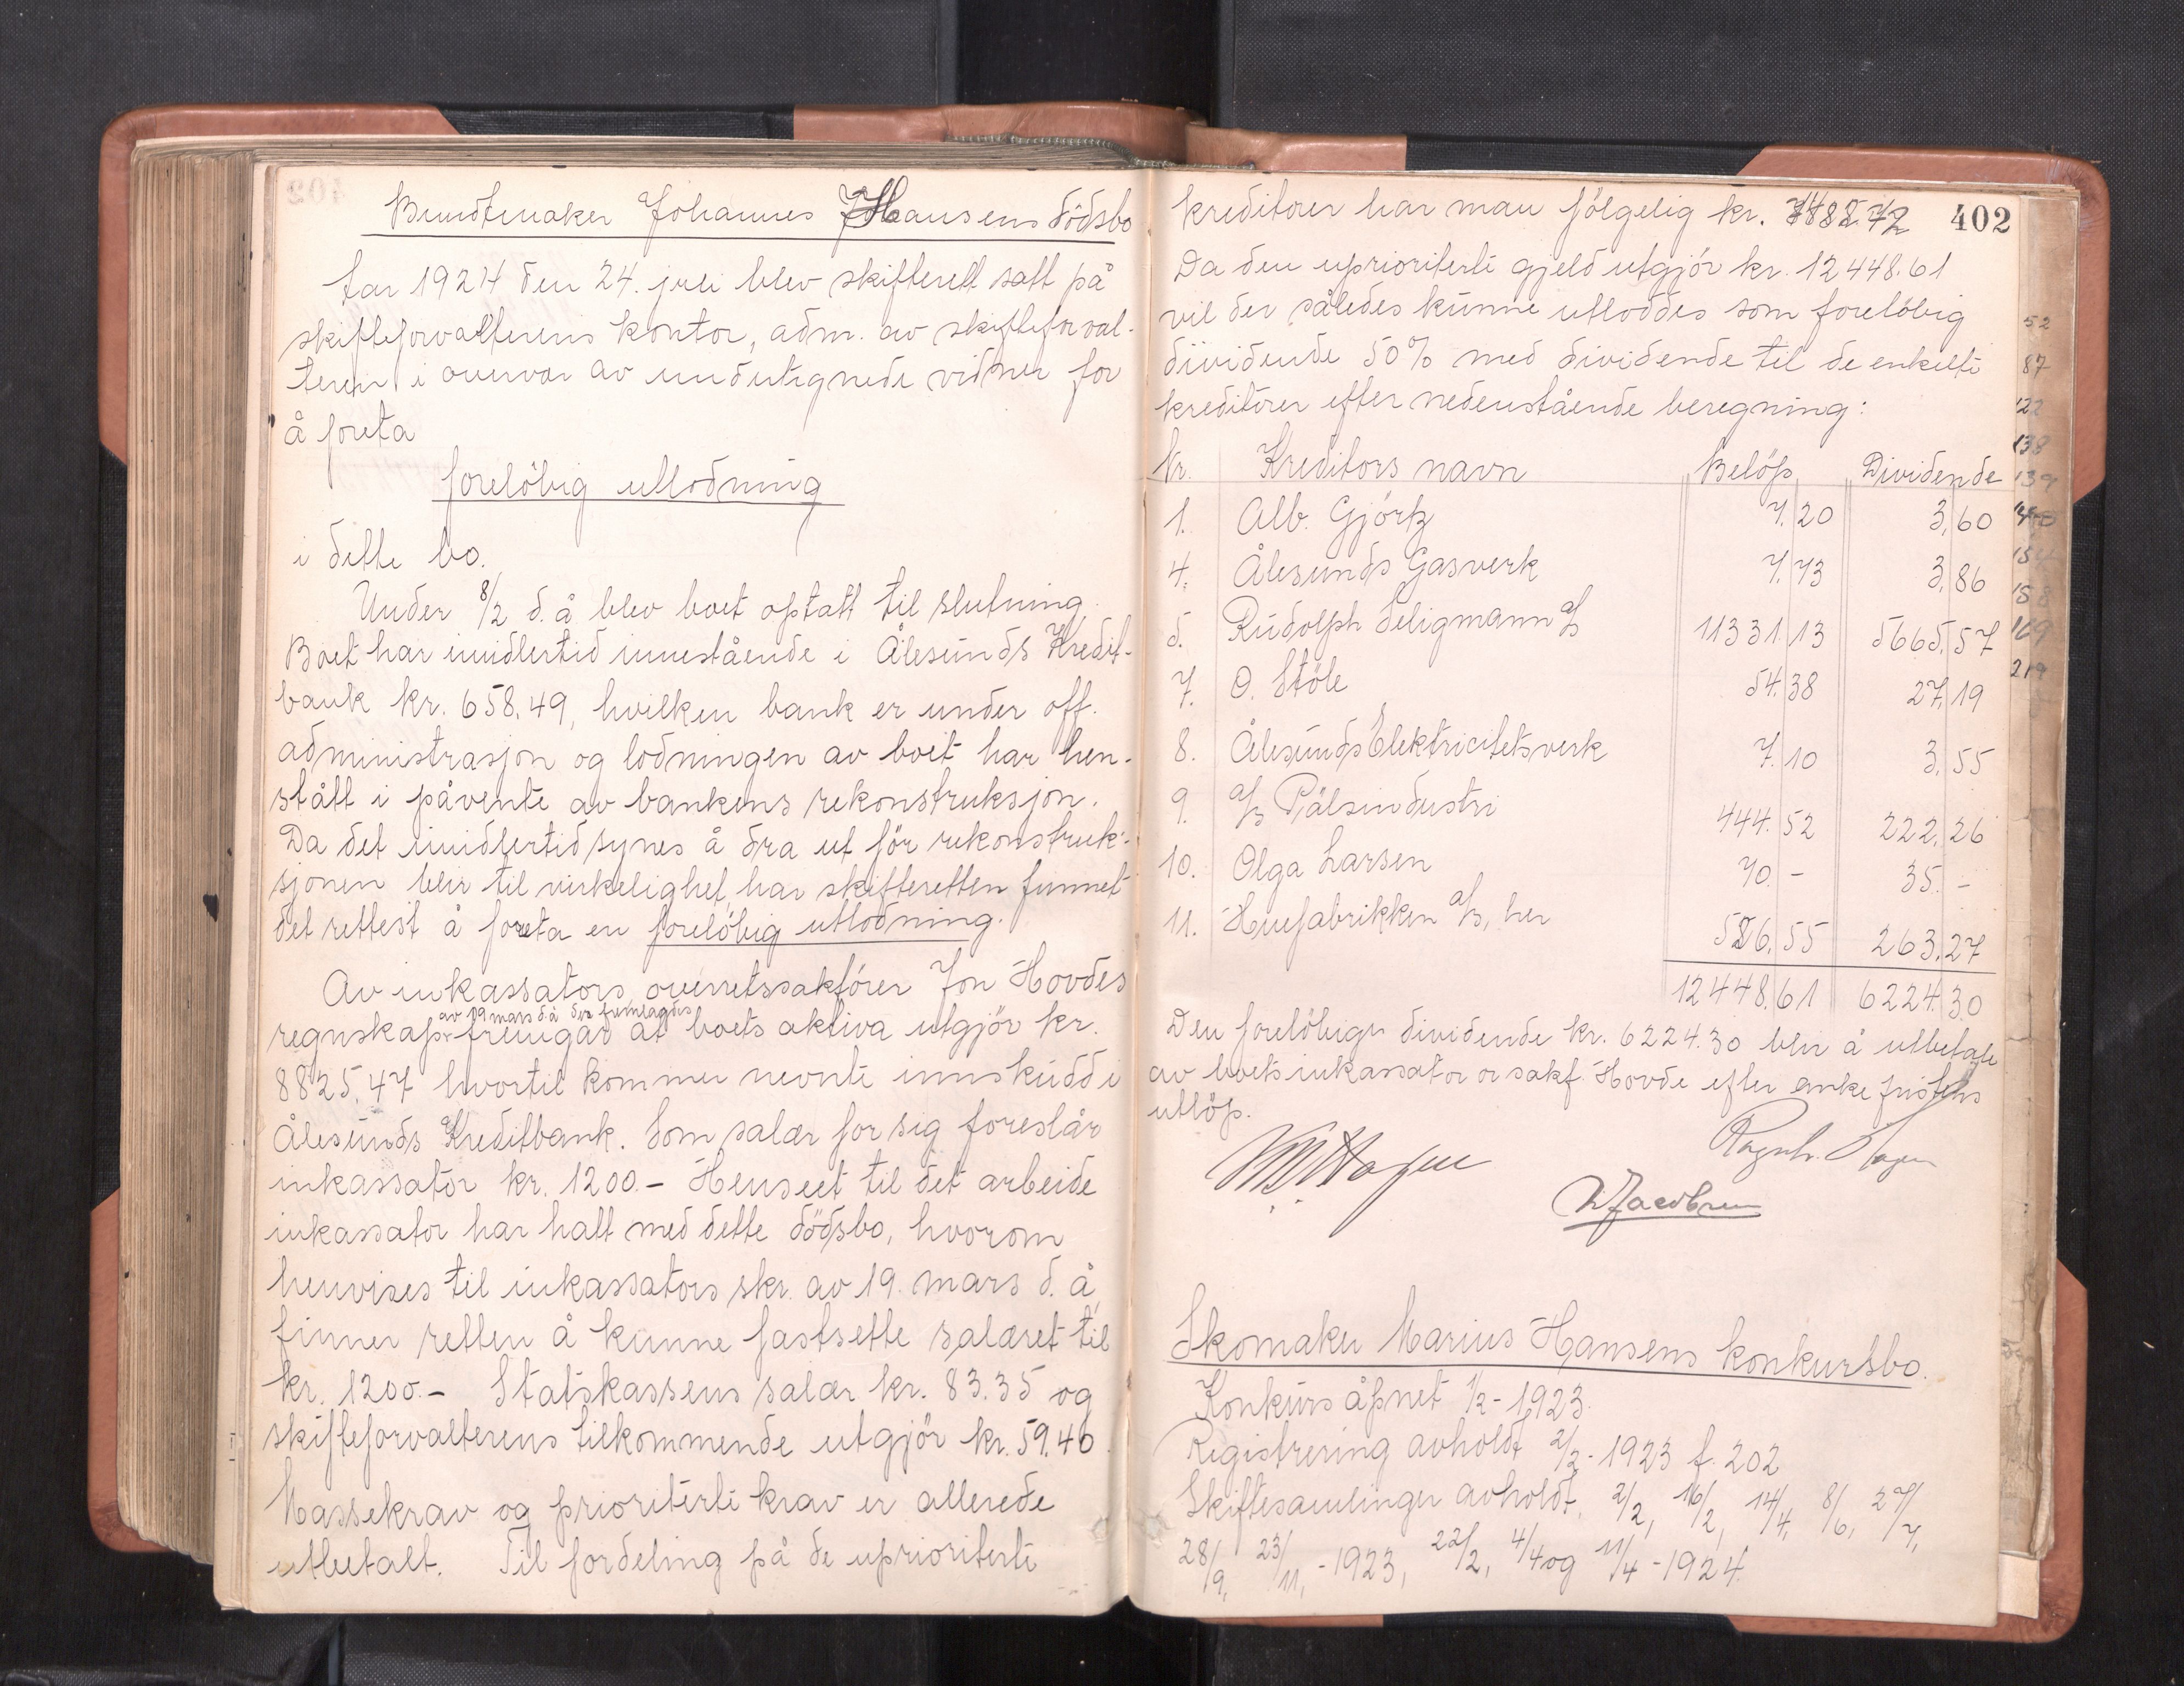 Bundtmaker Johannes Hansens dödsbo
År 1924 den 24. juli blev skifterett satt på
skifteforvalterens kontor, adm. av skifteforval-
teren i overvær av undertegnede vidner for
å foreta
foreløbig utlodning
i dette bo.
Under 8/2 d.å blev boet optatt til slutning.
Boet har imidlertid innestående i Ålesunds Kredit-
bank kr. 658.49, hvilken bank er under off.
administrasjon og lodningen av boet har hen-
stått i påvente av bankens rekonstruksjon.
Da det imidlertid synes å dra ut før rekonstruk-
sjonen blir til virkelighet, har skifteretten funnet
det rettest å foreta en foreløbig utlodning.
Av inkassators, overretssakfører Jon Hovdes
av 19 mars d å der fremlagdes
regnskap fremgår at boets aktiva utgjør kr.
8825.47 hvortil kommer nevnte innskudd i
Ålesunds Kreditbank. Som salær for sig foreslår
inkassator kr. 1200.- Henseet til det arbeide
inkassator har hatt med dette dødsbo, hvorom
henvises til inkassators skr. av 19. mars d. å,
finner retten å kunne fastsette salæret til
kr. 1200.- Statskassens salær kr. 83.35 og
skifteforvalterens tilkommende utgjør kr. 59.40.
Massekrav og prioriterte krav er allerede
utbetalt. Til fordeling på de uprioriterte
402
kreditorer har man følgelig kr.
Da den uprioriterte gjeld utgjør kr. 12448.61
vil der således kunne utloddes som foreløbig
dividende 50% med dividende til de enkelte
kreditorer efter nedenstående beregning:
Nr. Kreditors navn Beløp Dividende
1. Alb. Gjørtz 7.20 3.60
4. Ålesunds Gasverk 7.73 3.86
5. Rudolph Seligmann a/s 11331.13 5665.57
7. O. Støle 54.38 27.19
8. Ålesunds Elektricitetsverk 7.10 3.55
9. a/s Pälsindustri 444.52 222.26
10. Olga Larsen 70.- 35.-
11. Huefabrikken a/s, her 526.55 263.27
12448.61 6224.30
Den foreløbige dividende kr. 6224.30 blir å utbetale
av boets inkassator or sakf. Hovde efter ankefristens
utløp.
Hagen
Ragnh. Hagen
Jacobsen
Skomaker Marius Hansens konkursbo.
Konkurs åpnet 1/2 - 1923.
Registrering avholdt 2/2 - 1923 f. 202
Skiftesamlinger avholdt, 2/2, 16/2, 14/4, 8/6, 27/7,
28/9, 23/11, - 1923, 22/2, 4/4 og 11/4 - 1924.
52
87
122
138
139
154
158
169
219